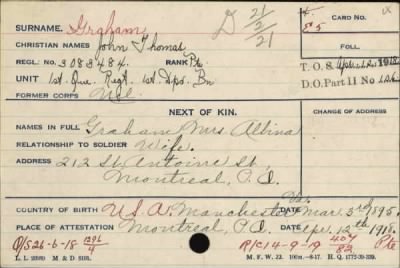 SURNAME. Graham D 21/2/21 CARD NO.
CHRISTIAN NAMES John Thomas
REGL. NO. 3083484. RANK Pte FOLL.
UNIT 1st. Que. Regt. 1st Dpo. Bn T.O.S. April 12 1918
FORMER CORPS Nil D.O. Part II No 126
NEXT OF KIN. CHANGE OF ADDRESS
NAMES IN FULL Graham Mrs Albina
RELATIONSHIP TO SOLDIER Wife.
ADDRESS 212 St. Antoine St.
Montreal, P.Q.
COUNTRY OF BIRTH U.S.A. Manchester DATE Mar. 3rd 1895.
PLACE OF ATTESTATION Montreal, P.Q. DATE Apr. 12th 1918.
O/S 26-6-18 R/C 14-9-19 407/82 Pte
L. L. 22830 M. & D. 5193. M. F. W. 22.